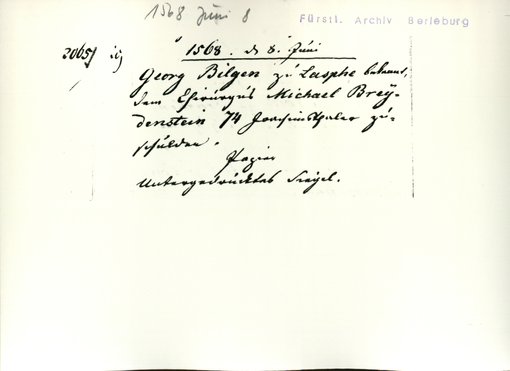 1568 Juni 8
Fürstl. Archiv Berleburg
1568. d. 8. Juni
Georg Bilgen zu Lasphe bekennt,
dem Chirurgus Michael Brey-
denstein 74 Joachimsthaler zu
schulden.
Papier
Untergedrücktes Siegel.